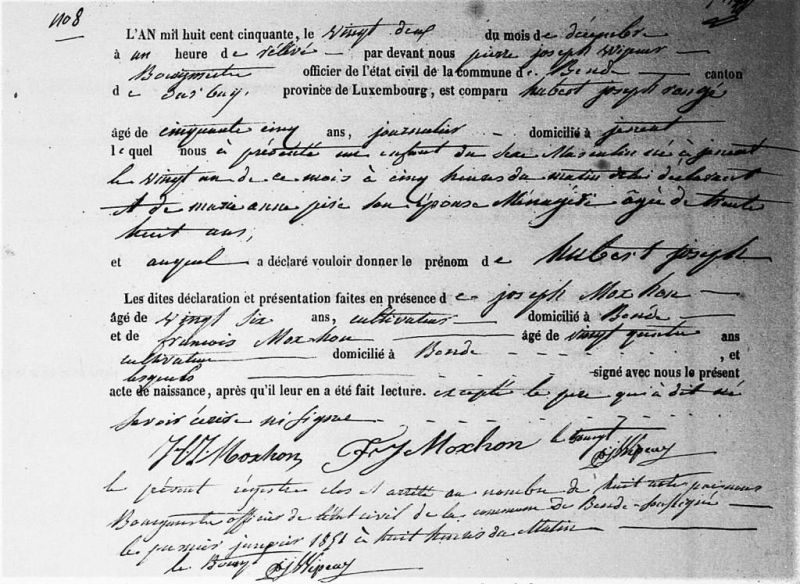 N° 8
L'AN mil huit cent cinquante, le vingt deux du mois de décembre
à un heure de rélévé par devant nous pierre joseph Wipeur
Bourgmestre officier de l'état civil de la commune de Bende canton
de Durbuy, province de Luxembourg, est comparu hubert joseph
âgé de cinquante cinq ans, journalier domicilié à jenent
lequel nous à présenté un enfant du sexe Masculin né à jenent
le vingt un de ce mois à cinq heures du matin de lui declarant
et de marie anne son épouse Ménagère âgée de trente
huit ans,
et auquel a déclaré vouloir donner le prénom de hubert joseph
Les dites déclaration et présentation faites en présence de joseph Moxhon
âgé de vingt six ans, cultivateur domicilié à Bende
et de francois Moxhon âgé de vingt quatre ans
cultivateur domicilié à Bende , et
lesquels signé avec nous le présent
acte de naissance, après qu'il leur en a été fait lecture. excepté le pere qui à dit né
savoir écrire ni signer
H.J. Moxhon, F J Moxhon le bourgt
PJ Wipeur
le présent régistre clos et arrêté au nombre de huit acte par nous
Bourgmestre officier de l'état civil de la commune de Bende soussigné
le premier janvier 1851 à huit heures du Matin
le Bourgt PJ Wipeur